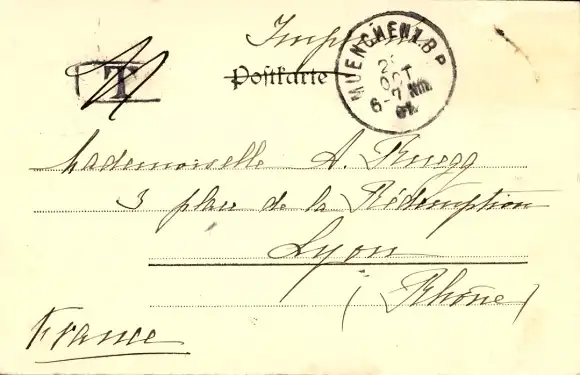 Imprimé
T
Postkarte
MUENCHEN 1.B.P.
OCT
6-7 Nm.
Mademoiselle A. Ruegg
3 place de la Rédemption
Lyon
(Rhône)
France